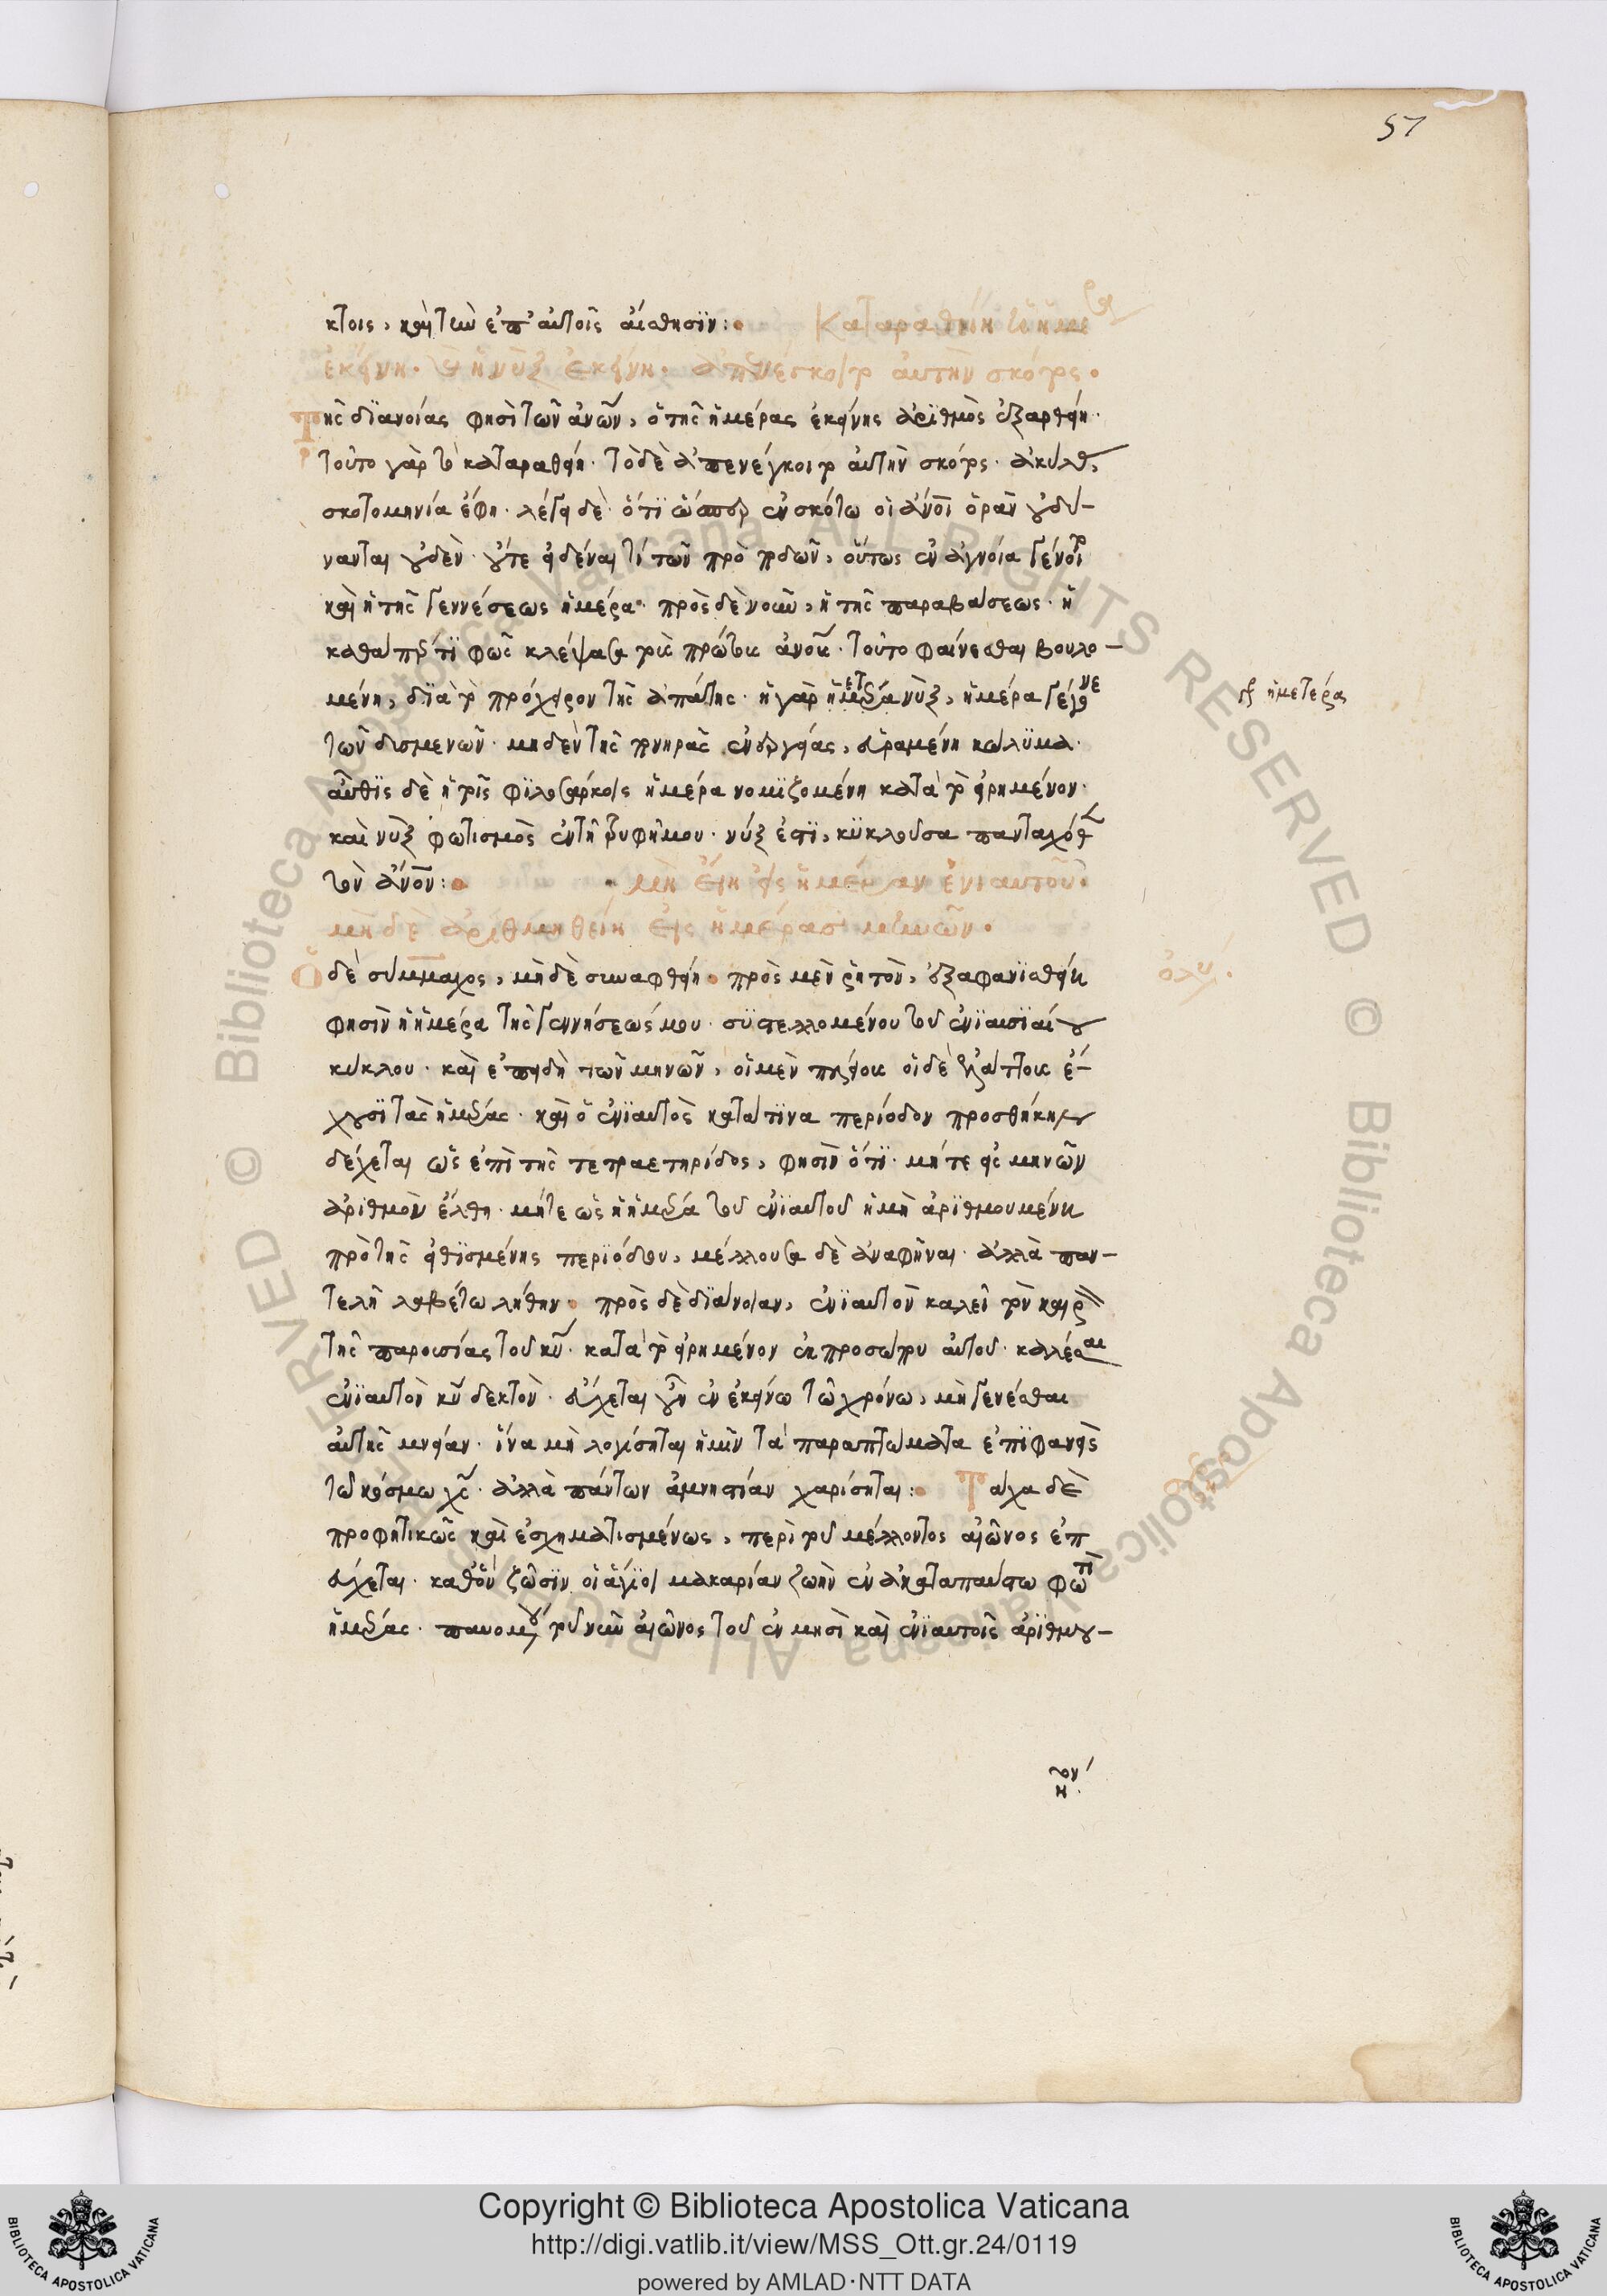 57
κτοις, καὶ τὴν ἐπ' αὐτοῖς αἴσθησϊν: Καταραθείη ἡ ἡμέρα
ἐκείνη. καὶ ἡ νὺξ ἐκείνη. ἀπενέγκοιτο αὐτὴν σκότος.
τῆς δϊανοίας φησὶ τῶν ἀνῶν, ὁ τῆς ἡμέρας ἐκείνης ἀρϊθμὸς ἐξαρθείη.
τοῦτο γὰρ τὸ καταραθείη. τὸ δὲ ἀπενέγκοιτο αὐτὴν σκότος. ἀκύλας,
σκοτομηνία ἔφη. λέγει δὲ ὅτϊ ὥσπερ ἐν σκότω οἱ ἄνοι ὁρᾶν οὐ δύ-
νανται οὐδὲν. οὔτε εἰδέναι τί τῶν πρὸ ποδῶν, οὕτως ἐν ἀγνοία γένοιτο
καὶ ἡ τῆς γεννέσεως ἡμέρα. πρὸς δὲ νοῦν, ἡ τῆς παραβάσεως. ἡ
καθάπερ τϊ φῶς κλέψασα τοῖς πρώτοις ἀνοις. τοῦτο φαίνεσθαι βουλο-
μένη, δϊὰ τὸ πρόχειρον τῆς ἀπάτης. ἡ γὰρ ἡμετέρα νὺξ, ἡμέρα γέγονε
ἐξ ἡμετέρας
τῶν δυσμενῶν. μηδὲν τῆς πονηρᾶς ἐνεργείας, εὑραμένη κωλϋμα.
αὖθϊς δὲ ἡ τοῖς φϊλοσάρκοις ἡμέρα νομϊζομένη κατὰ τὸ εἰρημένον.
καὶ νὺξ φωτισμὸς ἐν τῆ τρυφῆ μου. νύξ ἐστϊ, κϋκλοῦσα πανταχόθεν
τὸν ἄνον: μὴ εἴη εἰς ἡμέραν ἐνιαυτοῦ.
μηδὲ ἀριθμηθείη εἰς ἡμέρας μηνῶν.
ὁ δὲ σύμμαχος, μὴ δὲ συναφθείη. πρὸς μὲν ῥητὸν, ἐξαφανϊσθείη
ὀλυ.
φησὶν ἡ ἡμέρα τῆς γεννήσεώς μου. σϋστελλομένου τοῦ ἐνϊαυσϊαίου
κύκλου. καὶ ἐπειδὴ τῶν μηνῶν, οἱ μὲν πλείους οἱ δὲ ἐλάττους ἔ-
χουσϊ τὰς ἡμέρας. καὶ ὁ ἐνϊαυτὸς κατά τϊνα περίοδον προσθήκην
δέχεται ὡς ἐπὶ τῆς τετραετηρίδος, φησὶν ὅτϊ. μήτε εἰς μηνῶν
ἀριθμὸν ἔλθη. μήτε ὡς ἡ ἡμέρα τοῦ ἐνϊαυτοῦ ἡ μὴ ἀρϊθμουμένη
πρὸ τῆς εἰθϊσμένης περϊόδου, μέλλουσα δὲ ἀναφῆναι. ἀλλὰ παν-
τελῆ λαβέτω λήθην. πρὸς δὲ δϊάνοιαν, ἐνϊαυτὸν καλεῖ τὸν καιρὸν
τῆς παρουσίας τοῦ κυ. κατὰ τὸ εἰρημένον ἐκ προσώπου αὐτοῦ. καλέσαι
ἐνϊαυτὸν κυ δεκτὸν. εὔχεται οὖν ἐν ἐκείνω τῶ χρόνω, μὴ γενέσθαι
αὐτῆς μνείαν. ἵνα μὴ λογίσηται ἡμῖν τὰ παραπτώματα ἐπϊφανεὶς
τῶ κόσμω χς. ἀλλὰ πάντων ἀμνηστίαν χαρίσηται: Τάχα δὲ
προφητικῶς καὶ ἐσχηματισμένως, περὶ τοῦ μέλλοντος αἰῶνος ἐπ
εύχεται. καθ' ὃν ζῶσϊν οἱ ἅγϊοι μακαρίαν ζωὴν ἐν ἀκαταπαύστω φωτὶ
ἡμέρας. παυομένου τοῦ νῦν αἰῶνος τοῦ ἐν μησὶ καὶ ἐνϊαυτοῖς ἀρϊθμου-
Copyright © Biblioteca Apostolica Vaticana
http://digi.vatlib.it/view/MSS_Ott.gr.24/0119
powered by AMLAD·NTT DATA